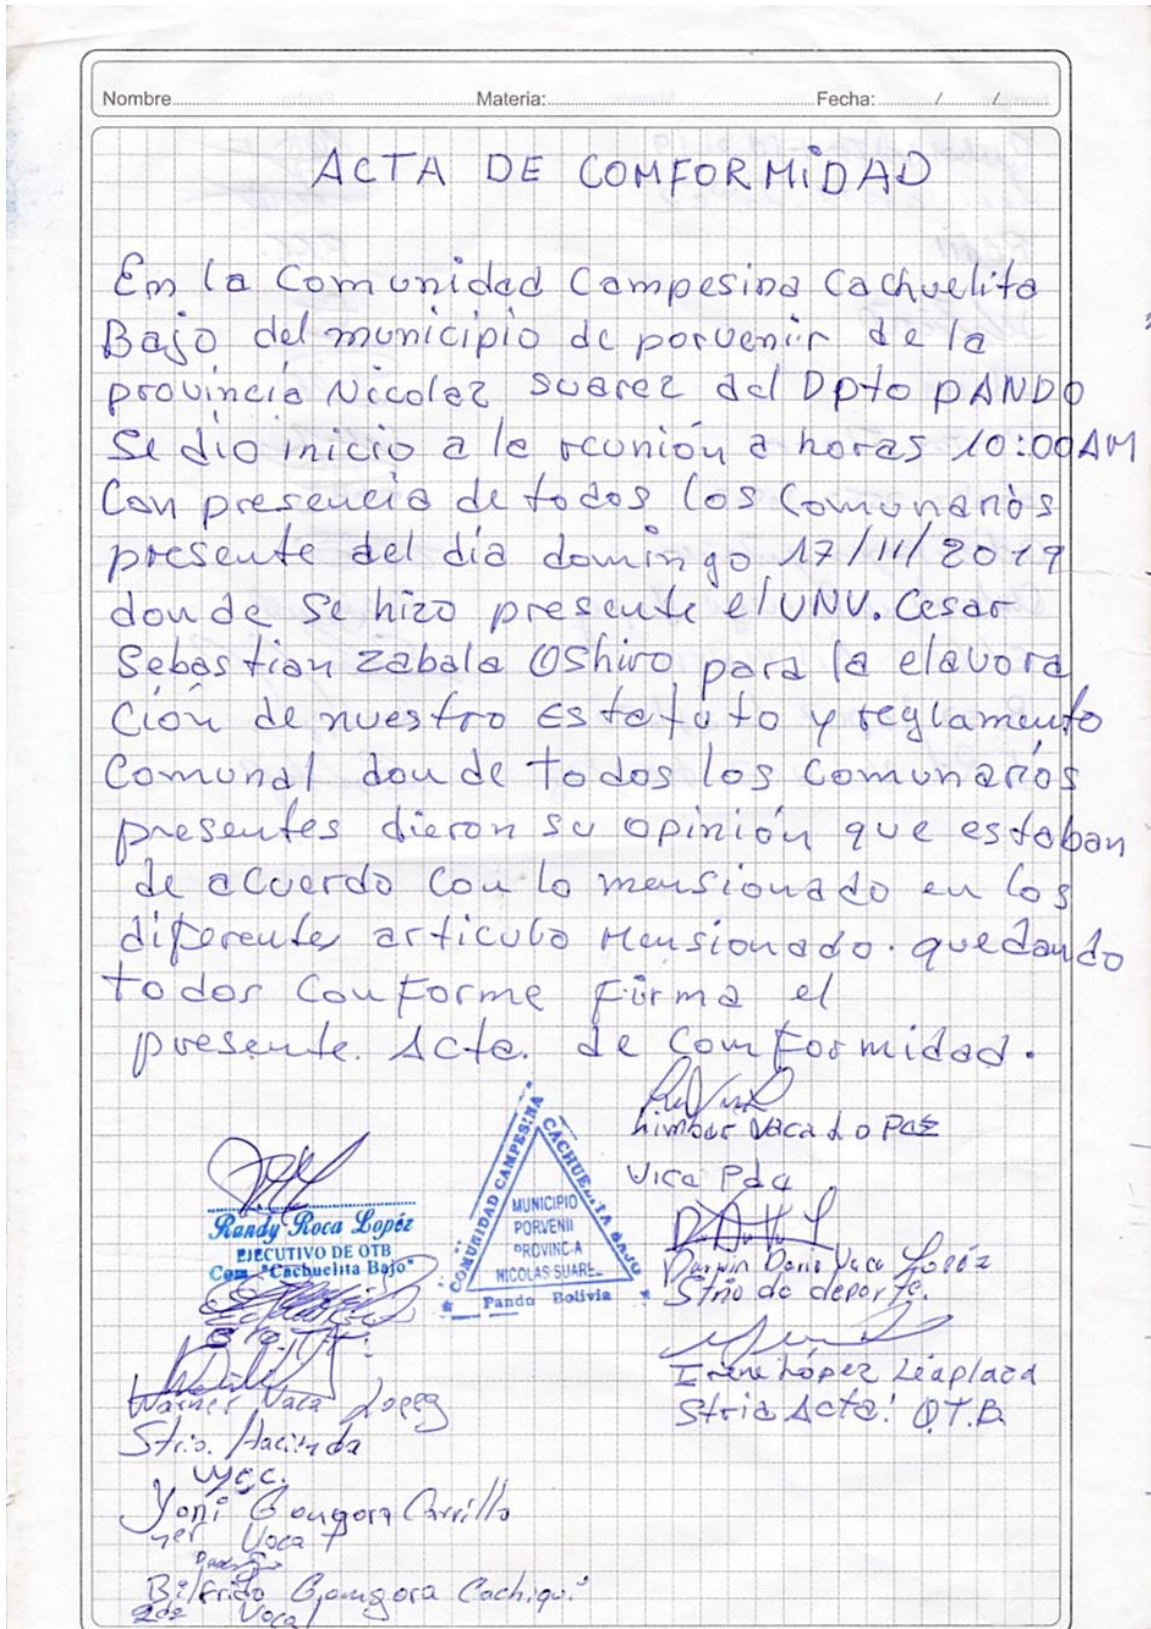 Nombre Materia: Fecha: / /
ACTA DE COMFORMIDAD
En la Comunidad Campesina Cachuelita
Bajo del municipio de porvenir de la
provincia Nicolaz suarez del Dpto PANDO
Se dio inicio a la reunión a horas 10:00 AM
Con presencia de todos los Comunarios
presente del día domingo 17/11/2019
donde Se hizo presente el UNV. Cesar
Sebastian Zabala OShiro para la elavora
Ción de nuestro Estatuto y reglamento
Comunal donde todos los Comunarios
presentes dieron su opinión que estaban
de acuerdo Con lo mensionado en los
diferente articulo mensionado. quedando
todos Conforme Firma el
presente. Acta. de Comformidad.
Limber Vaca Lopez
Vice Pdte
Randy Roca Lopéz
EJECUTIVO DE OTB
Com. "Cachuelita Bajo"
COMUNIDAD CAMPESINA CACHUELITA BAJO
MUNICIPIO
PORVENIR
PROVINCIA
NICOLAS SUAREZ
Pando Bolivia
Darwin Dario Vaca Lopéz
Strio de deporte.
Warner Vaca Lopez
Strio. Hacienda
Irene López
Stria Acta: OTB
Yoni Gongora Carrillo
1er Vocal
Bilfrido Gongora Cachiqui
2do Vocal